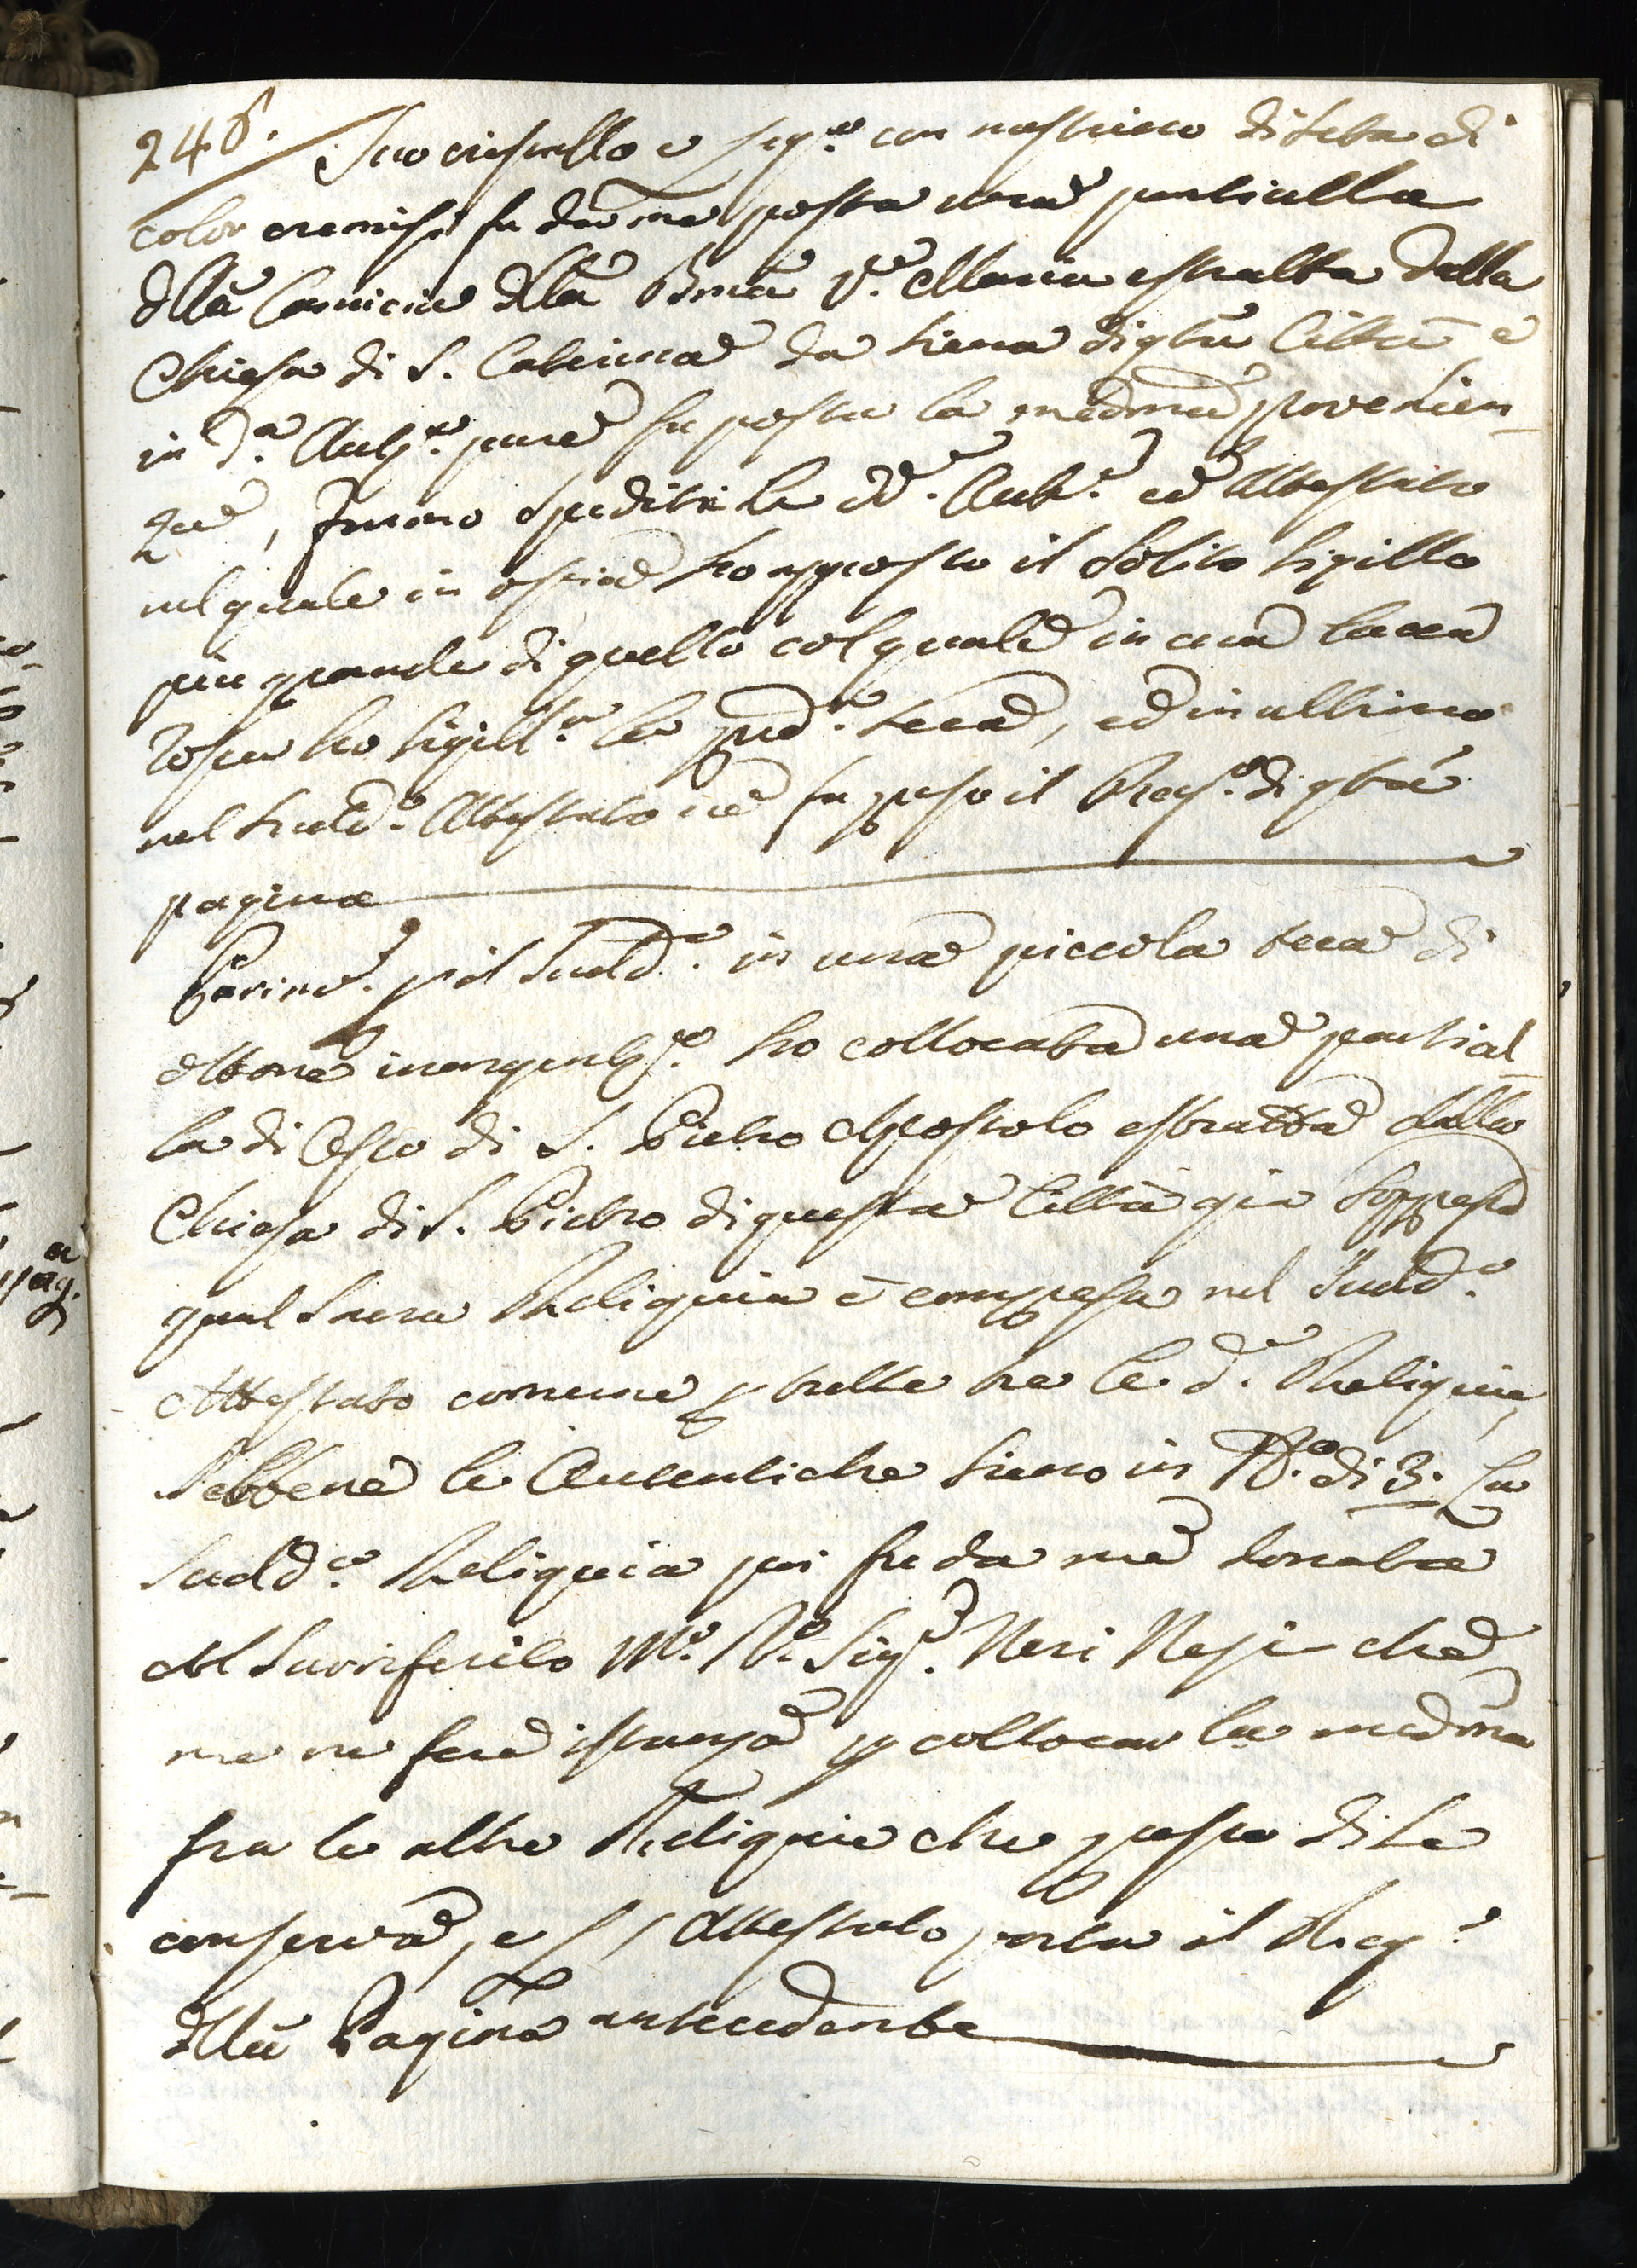 248.
Suo cristallo e seg.to con nastrino di seta di
color cremisi fu da me posta una particella
dlla Camicia dlla Bma V.e Maria estratta dalla
Chiesa di S. Caterina da Siena di qta Città, e
in d.a Aut.ca pure fu posta la medma provenien-
za, furono spedite le dd.e Aut.e ed Attestato
nel quale in ostia ho apposto il solito sigillo
più grande di quello col quale in cera lacca
rossa ho sigill.a la pred.a teca, ed in ultimo
nel sudd.o Attestato ne fu preso il Reg.o di qta
pagina
Parim.e p il sudd.o in una piccola teca di
ottone inargent.o ho collocata una partical
la di Osso di S. Pietro Apostolo estratta dalla
Chiesa di S. Pietro di questa Città già soppressa
qual Sacra Reliquia è compresa nel sudd.o
Attestato comune p tutte tre le d.e Reliquie,
Sebbene le Autentiche sieno in N.o di 3. La
sudd.a Reliquia poi fu da me donata
Al surriferito M.o R.o Sig.e Neri Nesi che
me ne fece istanza p collocar la medma
fra le altre Reliquie che presso di se
conserva, e Attestato porta il Reg.o
dlla Pagina antecedente
a
pag.